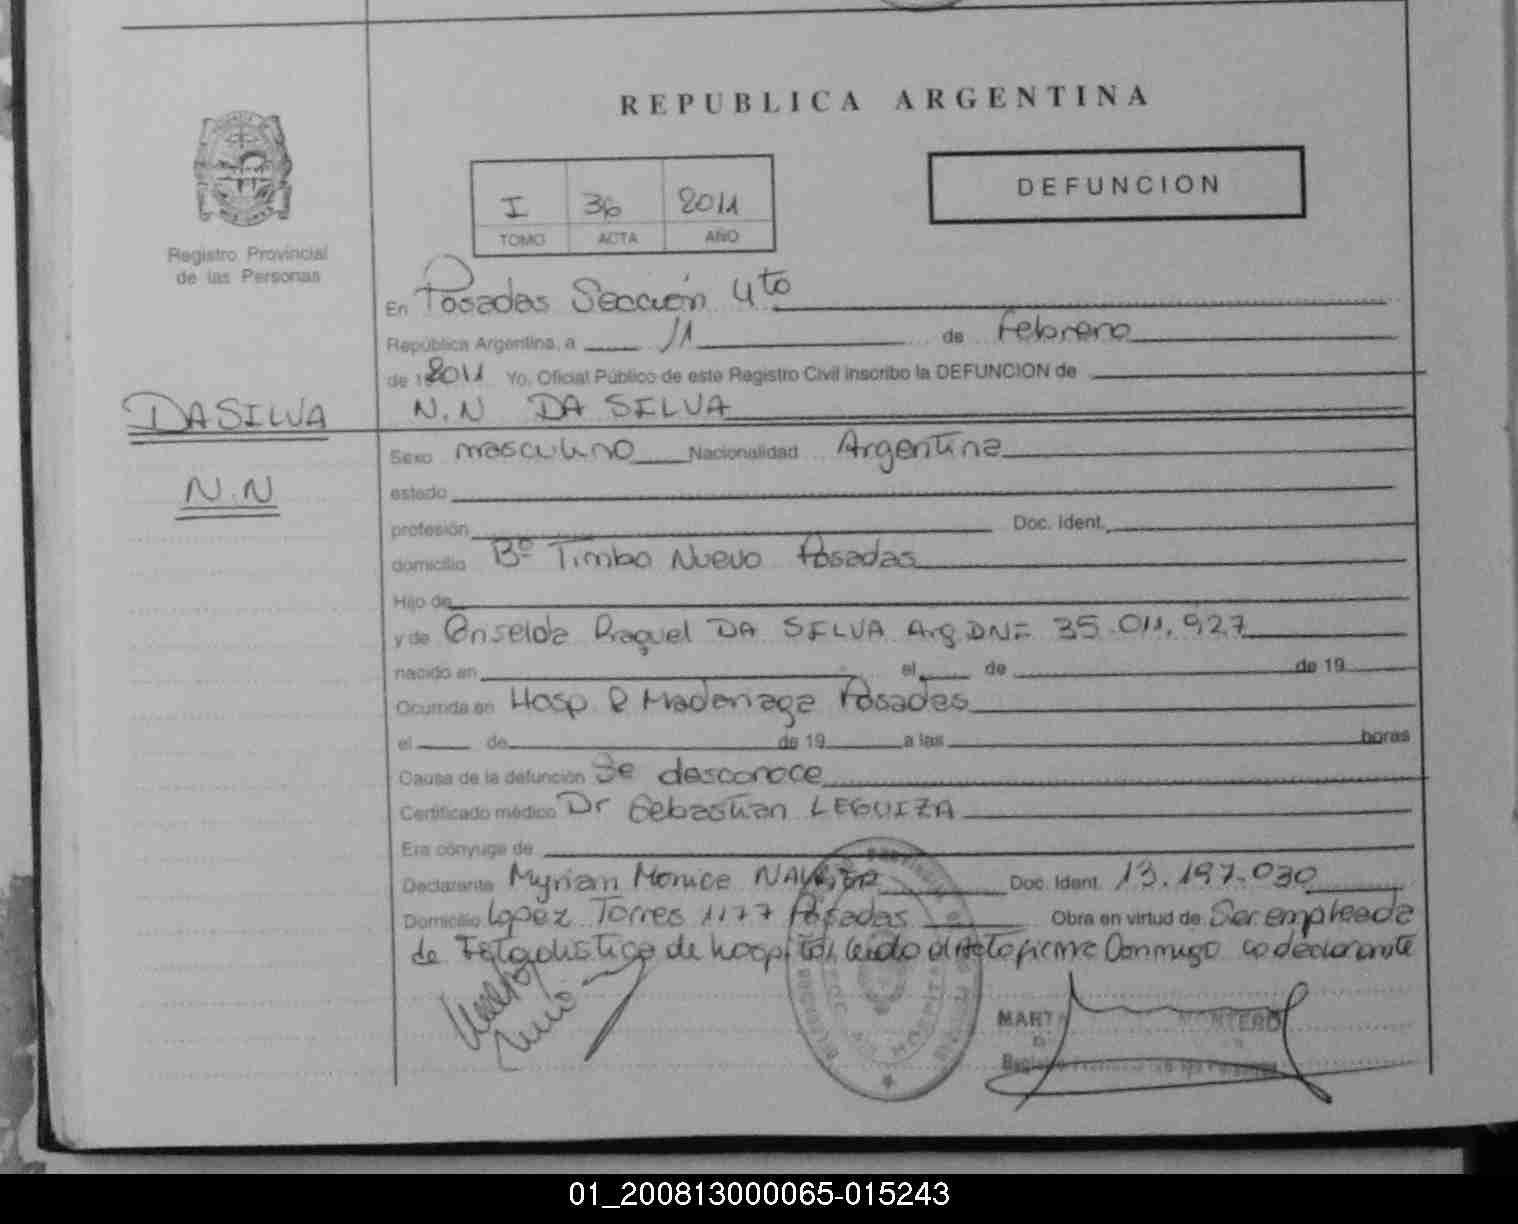 REPUBLICA ARGENTINA
DEFUNCION
I 36 2011
TOMO ACTA AÑO
Registro Provincial
de las Personas
En Posadas Sección 4to
República Argentina, a 11 de Febrero
de 2011 Yo, Oficial Público de este Registro Civil inscribo la DEFUNCION de
DA SILVA
N.N DA SILVA
Sexo masculino Nacionalidad Argentina
N.N
estado
profesión Doc. Ident.
domicilio Bº Timbo Nuevo Posadas
Hijo de
y de Griselda Raquel DA SILVA Arg DNI 35.011.927
nacido en el de de 19
Ocurrida en Hosp R Madariaga Posadas
el de de 19 a las horas
Causa de la defunción Se desconoce
Certificado médico Dr Sebastian LEGUIZA
Era cónyuge de
Declarante Myriam Monica Doc. Ident. 13.197.030
Domicilio Lopez Torres 1177 Posadas Obra en virtud de Ser empleada
de Estadistica de hospital, leido el Acto firma Conmigo declarante
MONTERO
01_200813000065-015243